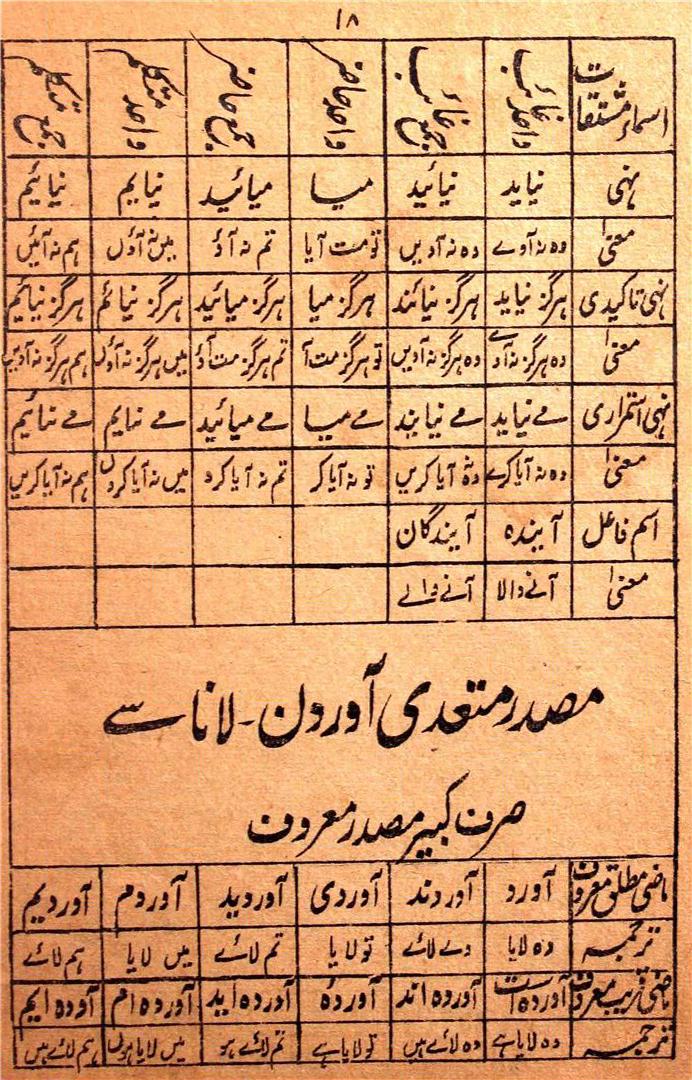 ۱۸
اسماء مشتقات واحد غائب جمع غائب واحد حاضر جمع حاضر واحد متکلم جمع متکلم
نہی نیاید نیائید میا میائید نیایم نیائیم
معنیٰ وہ نہ آوے وہ نہ آویں تو مت آیا تم نہ آؤ میں نہ آؤں ہم نہ آئیں
نہی تاکیدی ہرگز نیاید ہرگز نیائند ہرگز میا ہرگز میائید ہرگز نیائم ہرگز نیائیم
معنیٰ وہ ہرگز نہ آوے وہ ہرگز نہ آویں تو ہرگز مت آ تم ہرگز مت آؤ میں ہرگز نہ آؤں ہم ہرگز نہ آویں
نہی استمراری مے نیاید مے نیایند مے میا مے میائید مے نیایم مے نیائیم
معنیٰ وہ نہ آیا کرے وہ نہ آیا کریں تو نہ آیا کر تم نہ آیا کرو میں نہ آیا کروں ہم نہ آیا کریں
اسم فاعل آیندہ آیندگان
معنیٰ آنے والا آنے والے
مصدر متعدی آوردن ۔ لانا سے
صرف کبیر مصدر معروف
ماضی مطلق معروف آورد آوردند آوردی آوردید آوردم آوردیم
ترجمہ وہ لایا وے لائے تو لایا تم لائے میں لایا ہم لائے
ماضی قریب معروف آوردہ است آوردہ اند آوردۂ آوردہ اید آوردہ ام آوردہ ایم
ترجمہ وہ لایا ہے وہ لائے ہیں تو لایا ہے تم لائے ہو میں لایا ہوں ہم لائے ہیں